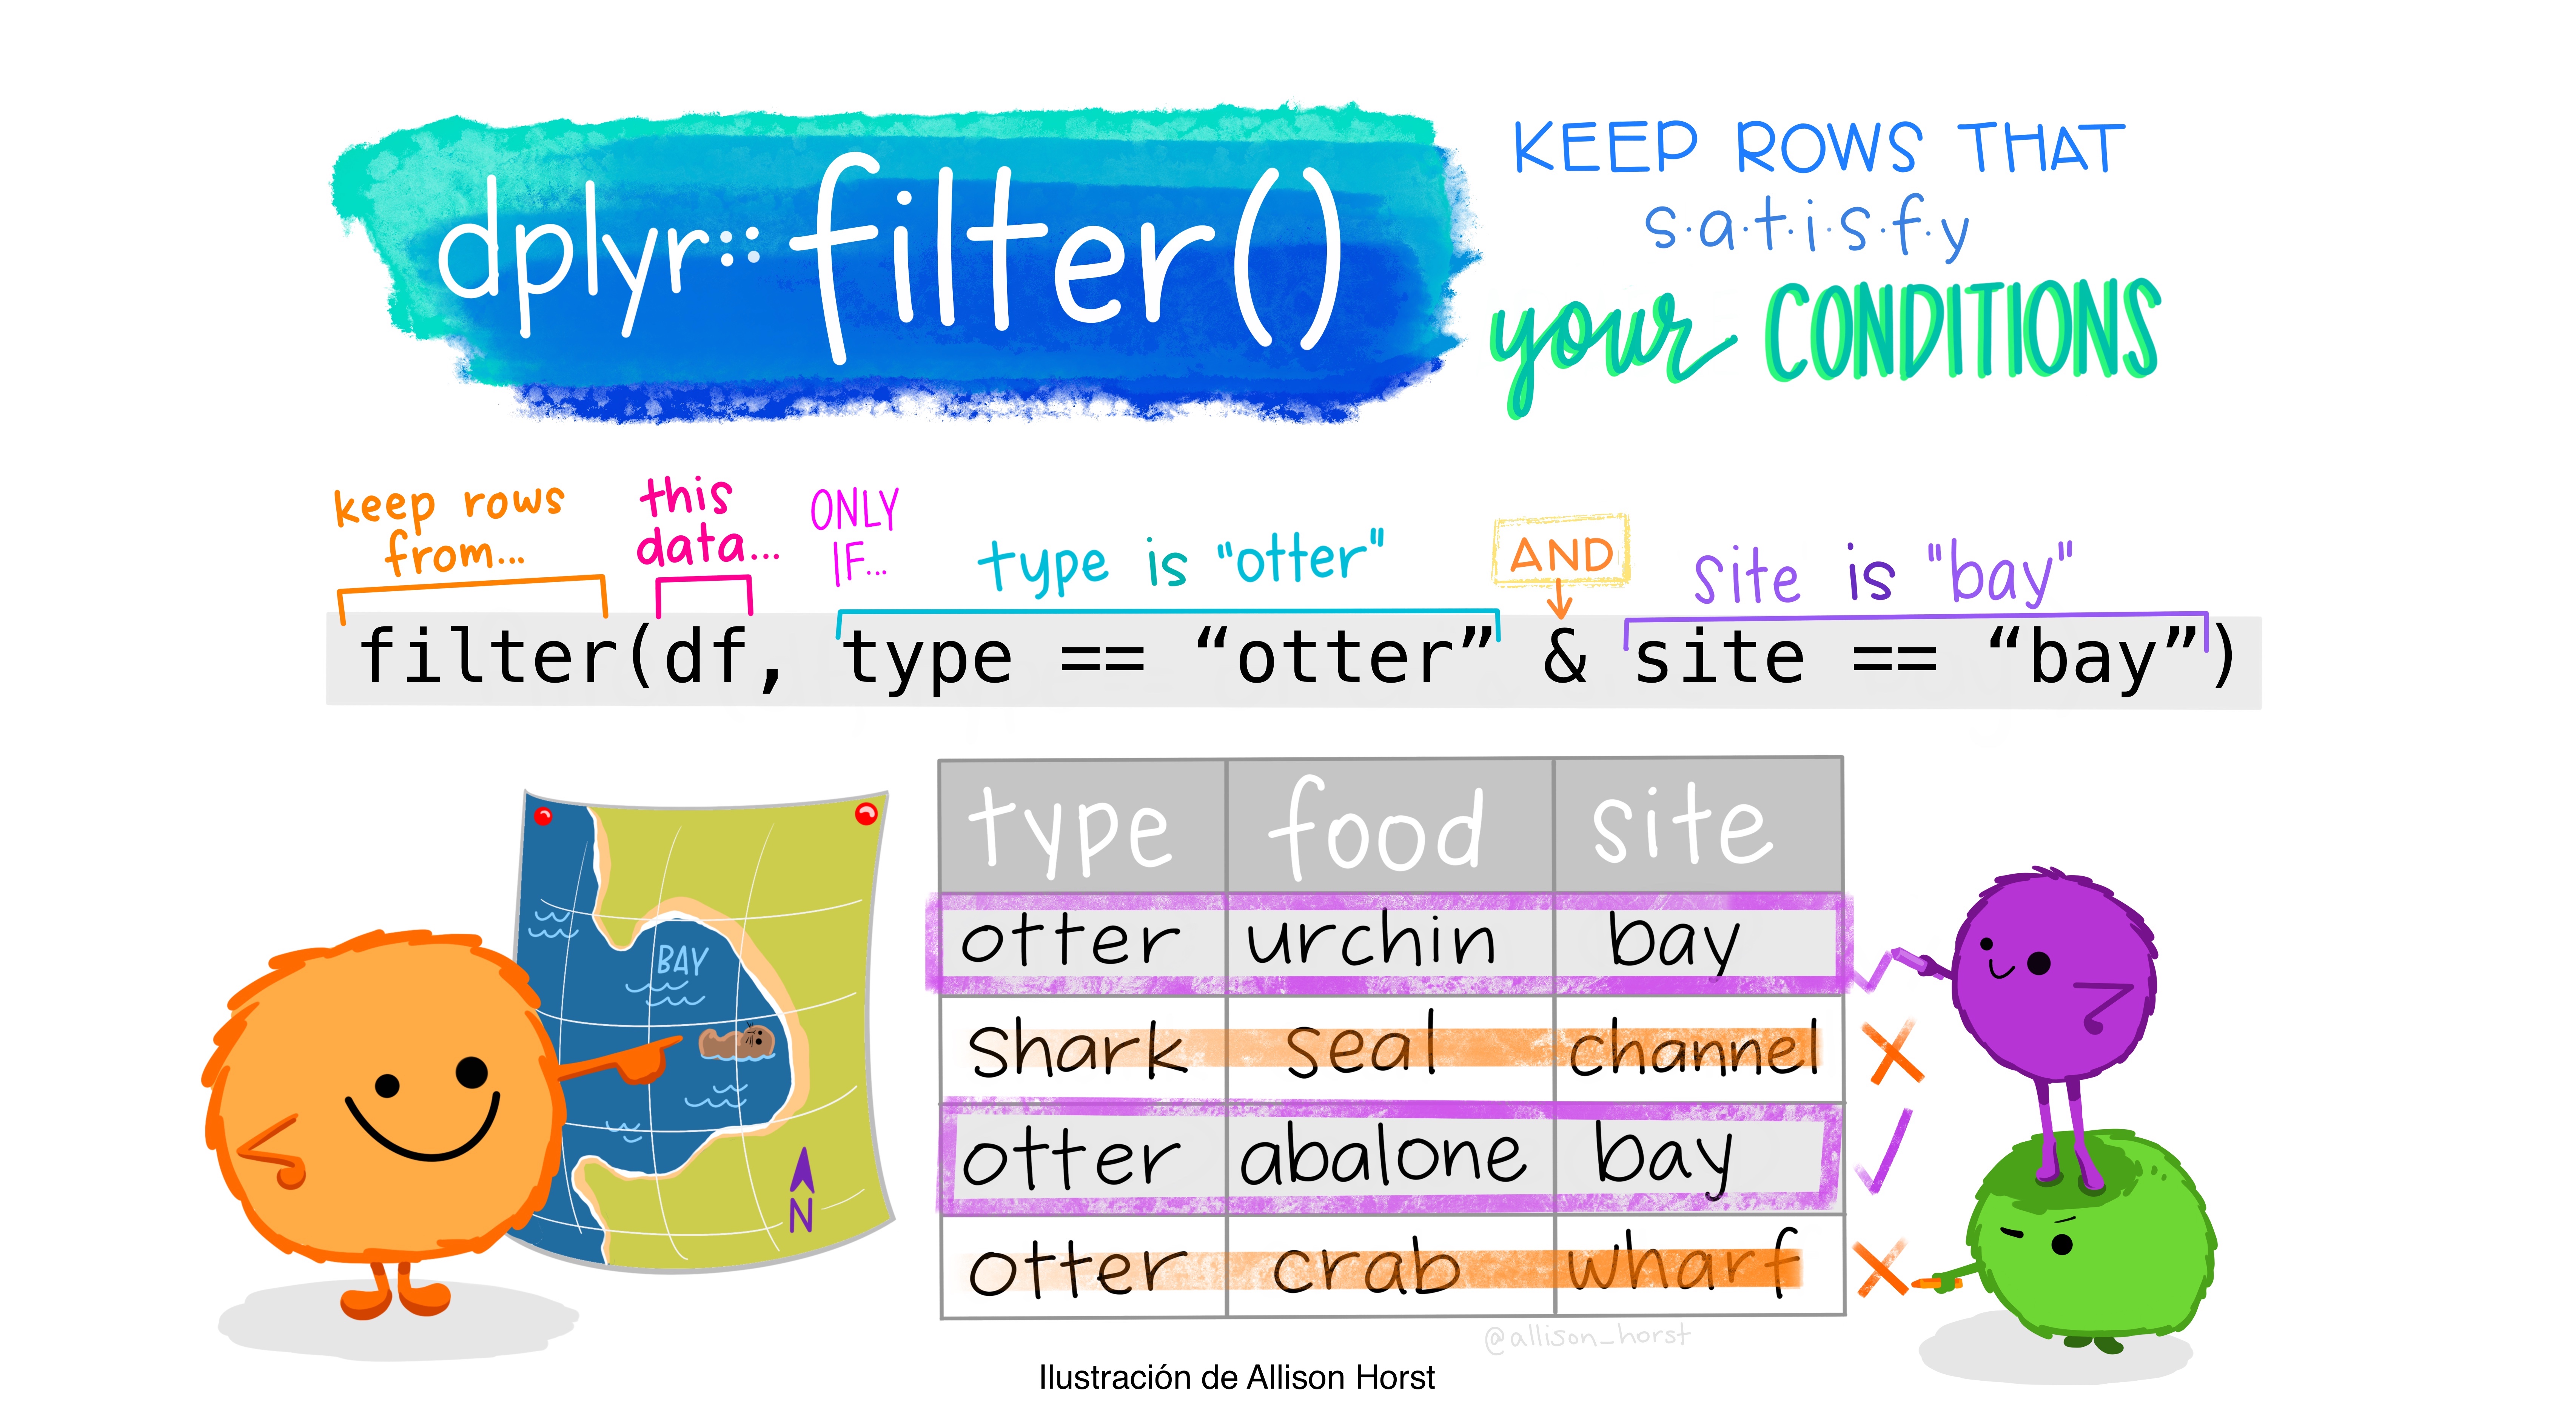 dplyr::filter()
KEEP ROWS THAT
s·a·t·i·s·f·y
your CONDITIONS
keep rows
from...
this
data...
ONLY
IF...
type is "otter"
AND
site is "bay"
filter(df, type == “otter” & site == “bay”)
BAY
N
type food site
otter urchin bay
Shark seal channel
otter abalone bay
otter crab wharf
@allison_horst
Ilustración de Allison Horst